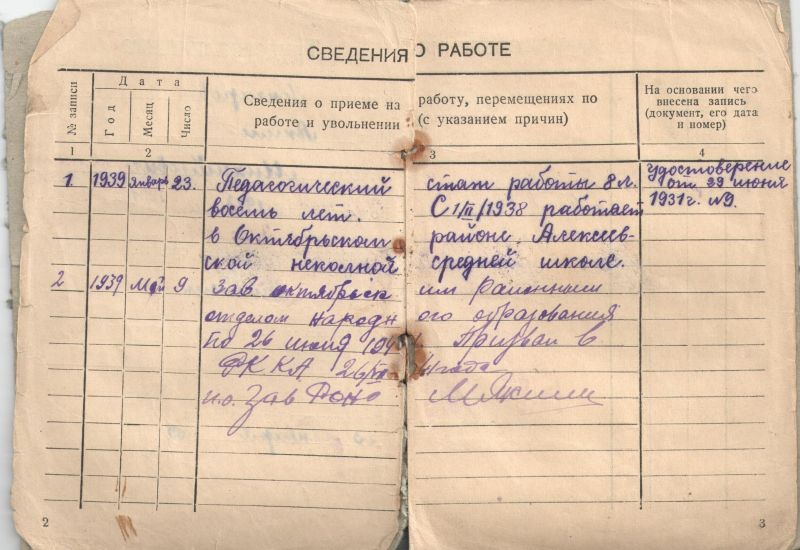 СВЕДЕНИЯ О РАБОТЕ
№ записи
Дата
Год
Месяц
Число
Сведения о приеме на работу, перемещениях по
работе и увольнении (с указанием причин)
На основании чего
внесена запись
(документ, его дата
и номер)
1 2 3 4
1. 1939 январь 23. Педагогический стаж работы 8 л. удостоверение
восемь лет. С 1/II/1938 работает от 29 июня
в Октябрьском районе, Алексеев- 1931 г. №9.
ской неполной средней школе.
2 1939 Май 9 Зав октябрьским Районным
отделом народного образования
по 26 июня 194 Призван в
РККА 26/ 41 года
и.о. Зав Роно
2
3